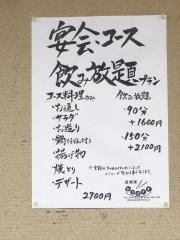 宴会・コース
飲み放題プラン
コース料理のみ
・お通し
・サラダ
・お造り
・揚げ物
・焼とり
・デザート
2900円
飲み放題
・90分
+1600円
・150分
+2100円